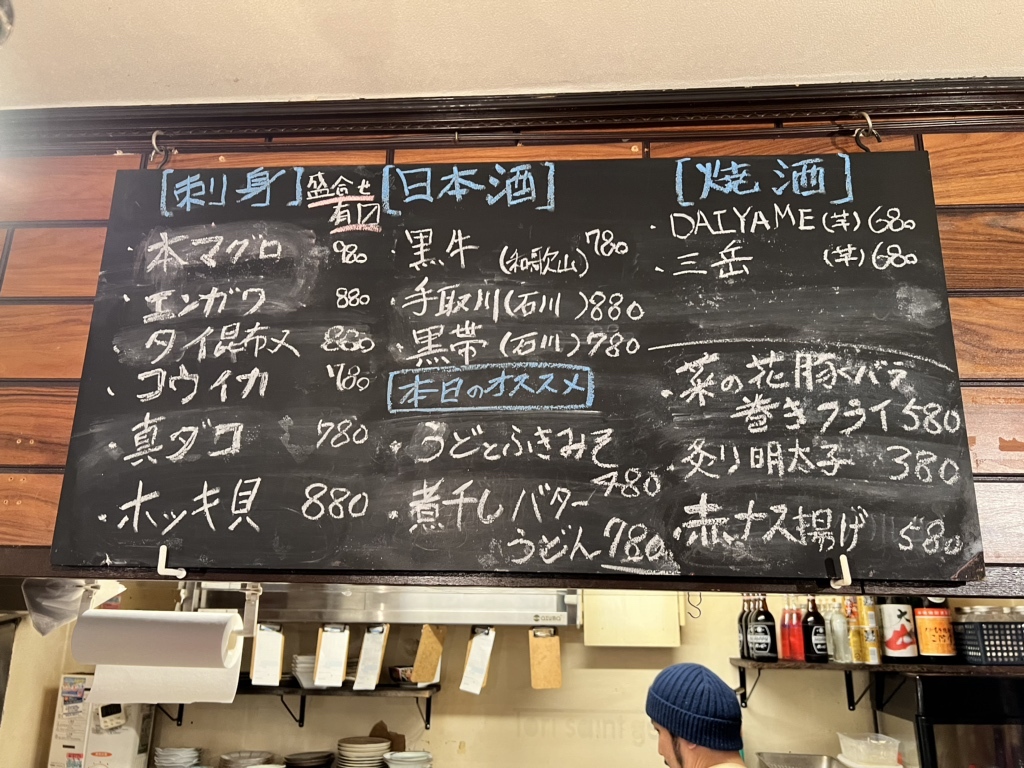 [刺身]
盛合せ
有〼
・本マグロ 980
・エンガワ 880
・タイ昆布〆 880
・コウイカ 780
・真ダコ 780
・ホッキ貝 880
[日本酒]
・黒牛 (和歌山) 780
・手取川(石川)880
・黒帯(石川)780
本日のオススメ
・うどとふきみそ
480
・煮干しバター
うどん 780
[焼酒]
・DAIYAME(芋)680
・三岳 (芋)680
・菜の花豚バラ
巻きフライ580
・炙り明太子 380
・赤ナス揚げ 580